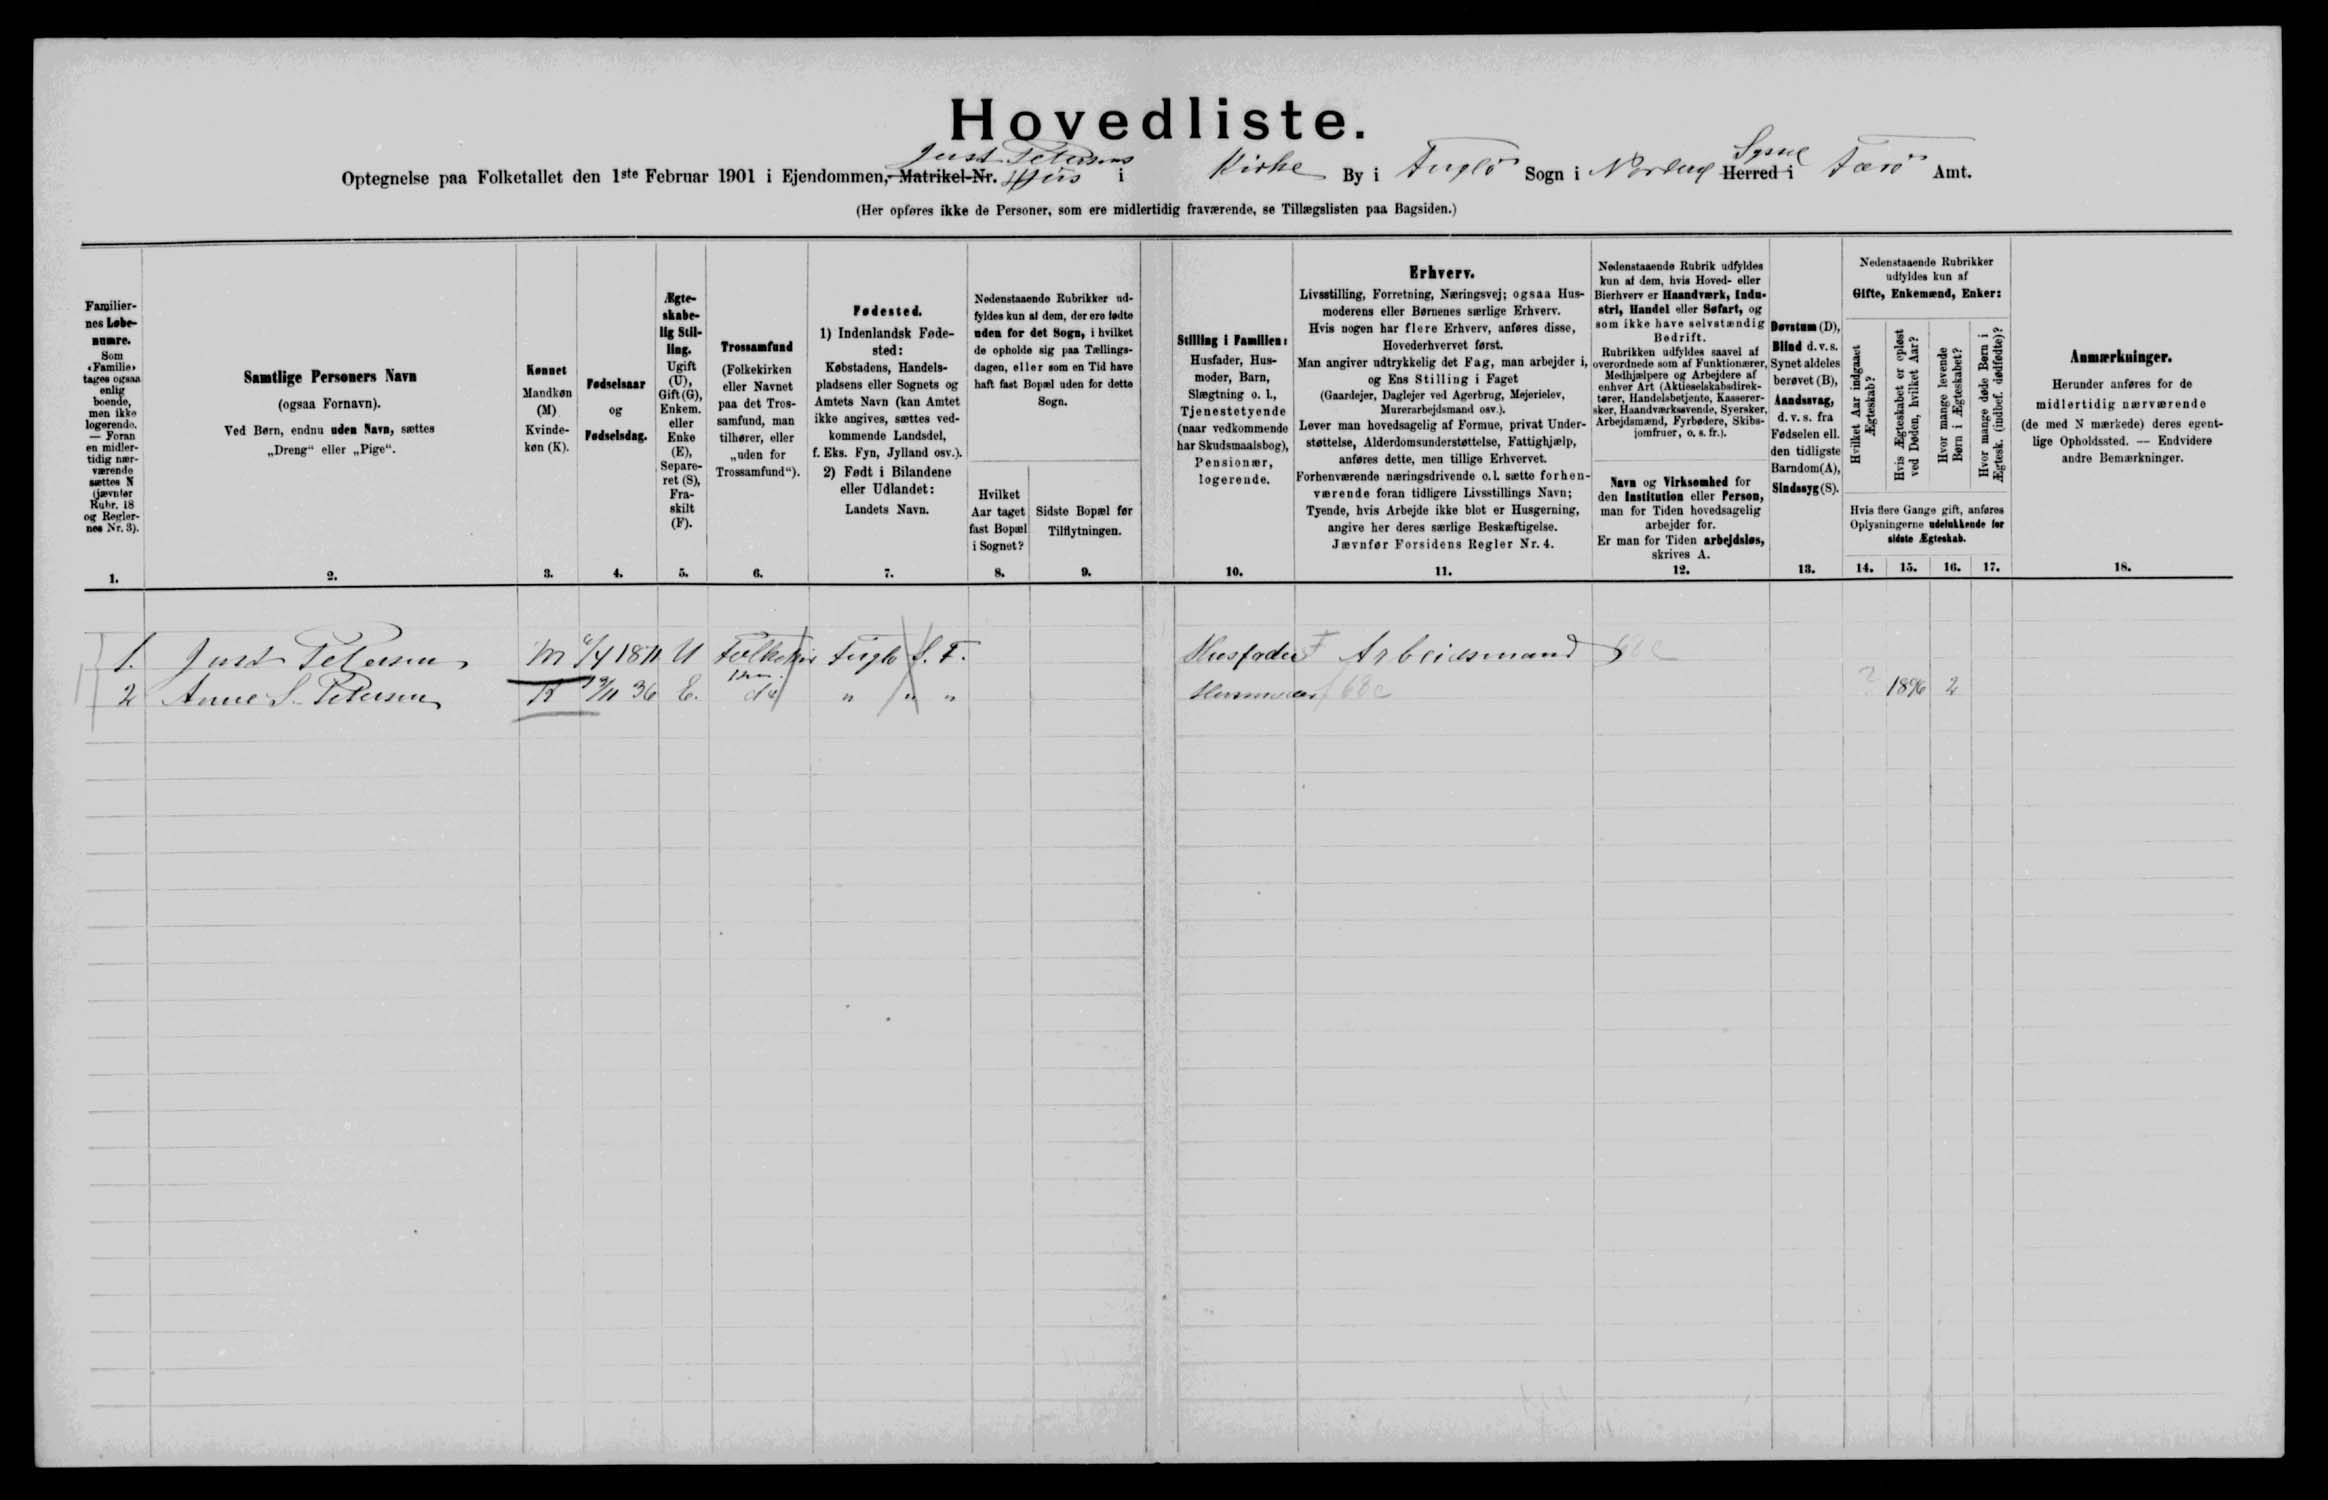 Hovedliste.
Just Petersens Sysse
Optegnelse paa Folketallet den 1ste Februar 1901 i Ejendommen, Matrikel-Nr. Hus i Kirke By i Fuglø Sogn i Herred i Færø Amt.
(Her opføres ikke de Personer, som ere midlertidig fraværende, se Tillægslisten paa Bagsiden.)
Familier-
nes Løbe-
numre.
Som
«Familie»
tages ogsaa
enlig
boende,
men ikke
logerende.
— Foran
en midler-
tidig nær-
værende
sættes N
(jævnfør
Rubr. 18
og Regler-
nes Nr. 3).
1.
Samtlige Personers Navn
(ogsaa Fornavn).
Ved Børn, endnu uden Navn, sættes
„Dreng“ eller „Pige“.
2.
Kønnet
Mandkøn
(M)
Kvinde-
køn (K).
3.
Fødselsaar
og
Fødselsdag.
4.
Ægte-
skabe-
lig Stil-
ling.
Ugift
(U),
Gift (G),
Enkem.
eller
Enke
(E),
Separe-
ret (S),
Fra-
skilt
(F).
5.
Trossamfund
(Folkekirken
eller Navnet
paa det Tros-
samfund, man
tilhører, eller
„uden for
Trossamfund“).
6.
Fødested.
1) Indenlandsk Føde-
sted:
Købstadens, Handels-
pladsens eller Sognets og
Amtets Navn (kan Amtet
ikke angives, sættes ved-
kommende Landsdel,
f. Eks. Fyn, Jylland osv.).
2) Født i Bilandene
eller Udlandet:
Landets Navn.
7.
Nedenstaaende Rubrikker ud-
fyldes kun af dem, der ere fødte
uden for det Sogn, i hvilket
de opholde sig paa Tællings-
dagen, eller som en Tid have
haft fast Bopæl uden for dette
Sogn.
Hvilket
Aar taget
fast Bopæl
i Sognet?
8.
Sidste Bopæl før
Tilflytningen.
9.
Stilling i Familien:
Husfader, Hus-
moder, Barn,
Slægtning o. l.,
Tjenestetyende
(naar vedkommende
har Skudsmaalsbog),
Pensionær,
logerende.
10.
Erhverv.
Livsstilling, Forretning, Næringsvej; ogsaa Hus-
moderens eller Børnenes særlige Erhverv.
Hvis nogen har flere Erhverv, anføres disse,
Hovederhvervet først.
Man angiver udtrykkelig det Fag, man arbejder i,
og Ens Stilling i Faget
(Gaardejer, Daglejer ved Agerbrug, Mejerielev,
Murerarbejdsmand osv.).
Lever man hovedsagelig af Formue, privat Under-
støttelse, Alderdomsunderstøttelse, Fattighjælp,
anføres dette, men tillige Erhvervet.
Forhenværende næringsdrivende o. l. sætte forhen-
værende foran tidligere Livsstillings Navn;
Tyende, hvis Arbejde ikke blot er Husgerning,
angive her deres særlige Beskæftigelse.
Jævnfør Forsidens Regler Nr. 4.
11.
Nedenstaaende Rubrik udfyldes
kun af dem, hvis Hoved- eller
Bierhverv er Haandværk, Indu-
stri, Handel eller Søfart, og
som ikke have selvstændig
Bedrift.
Rubrikken udfyldes saavel af
overordnede som af Funktionærer,
Medhjælpere og Arbejdere af
enhver Art (Aktieselskabsdirek-
tører, Handelsbetjente, Kasserer-
sker, Haandværkssvende, Syersker,
Arbejdsmænd, Fyrbødere, Skibs-
jomfruer, o. s. fr.).
Navn og Virksomhed for
den Institution eller Person,
man for Tiden hovedsagelig
arbejder for.
Er man for Tiden arbejdsløs,
skrives A.
12.
Døvstum (D),
Blind d. v. s.
Synet aldeles
berøvet (B),
Aandssvag,
d. v. s. fra
Fødselen ell.
den tidligste
Barndom (A),
Sindssyg (S).
13.
Nedenstaaende Rubrikker
udfyldes kun af
Gifte, Enkemænd, Enker:
Hvilket Aar indgaaet
Ægteskab?
Hvis Ægteskabet er opløst
ved Døden, hvilket Aar?
Hvor mange levende
Børn i Ægteskabet?
Hvor mange døde Børn i
Ægtesk. (indbef. dødfødte)?
Hvis flere Gange gift, anføres
Oplysningerne udelukkende for
sidste Ægteskab.
14. 15. 16. 17.
Anmærkninger.
Herunder anføres for de
midlertidig nærværende
(de med N mærkede) deres egent-
lige Opholdssted. — Endvidere
andre Bemærkninger.
18.
1. Just Petersen M U Fuglø S. F. Husfader Arbeidsmand
2 Anne S. Petersen K 36 E. do " " " Husmoder 68c ? 1896 2